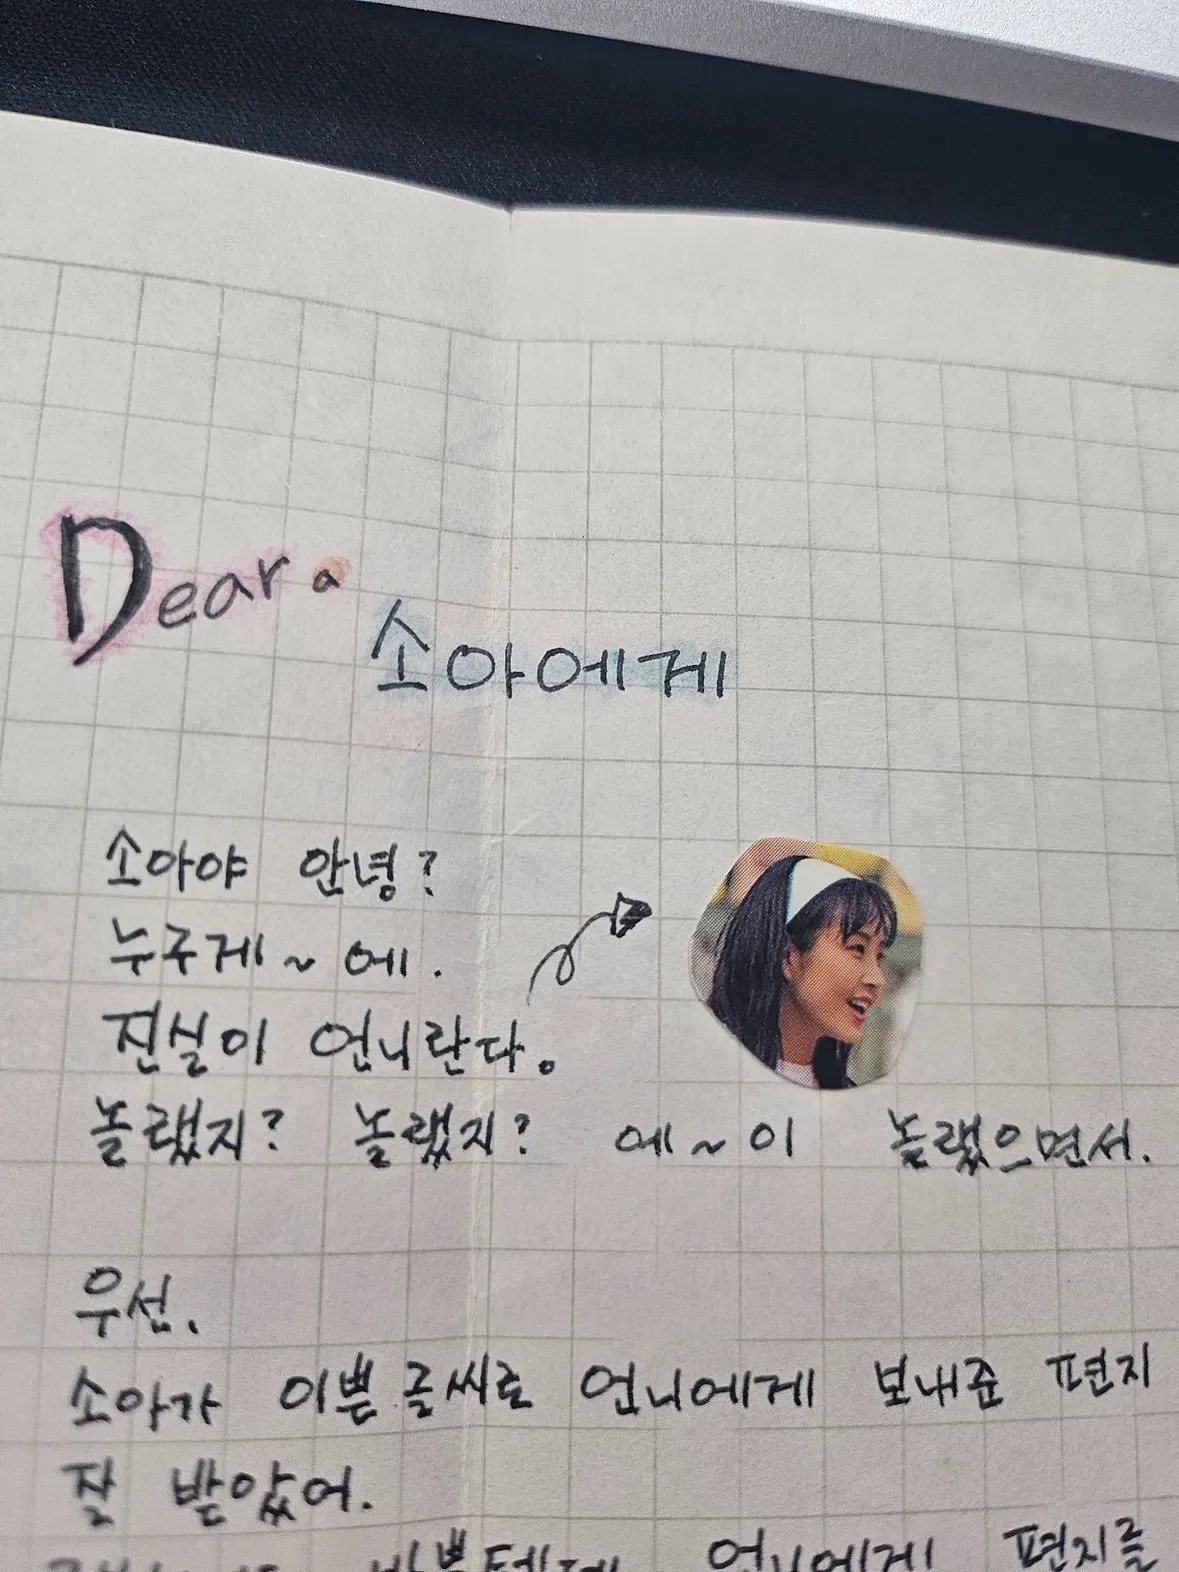 Dear a
소아에게
소아야 안녕?
누구게~에.
진실이 언니란다.
놀랬지? 놀랬지? 에~이 놀랬으면서.
우선.
소아가 이쁜 글씨로 언니에게 보내준 편지
잘 받았어.
언니에게 편지를